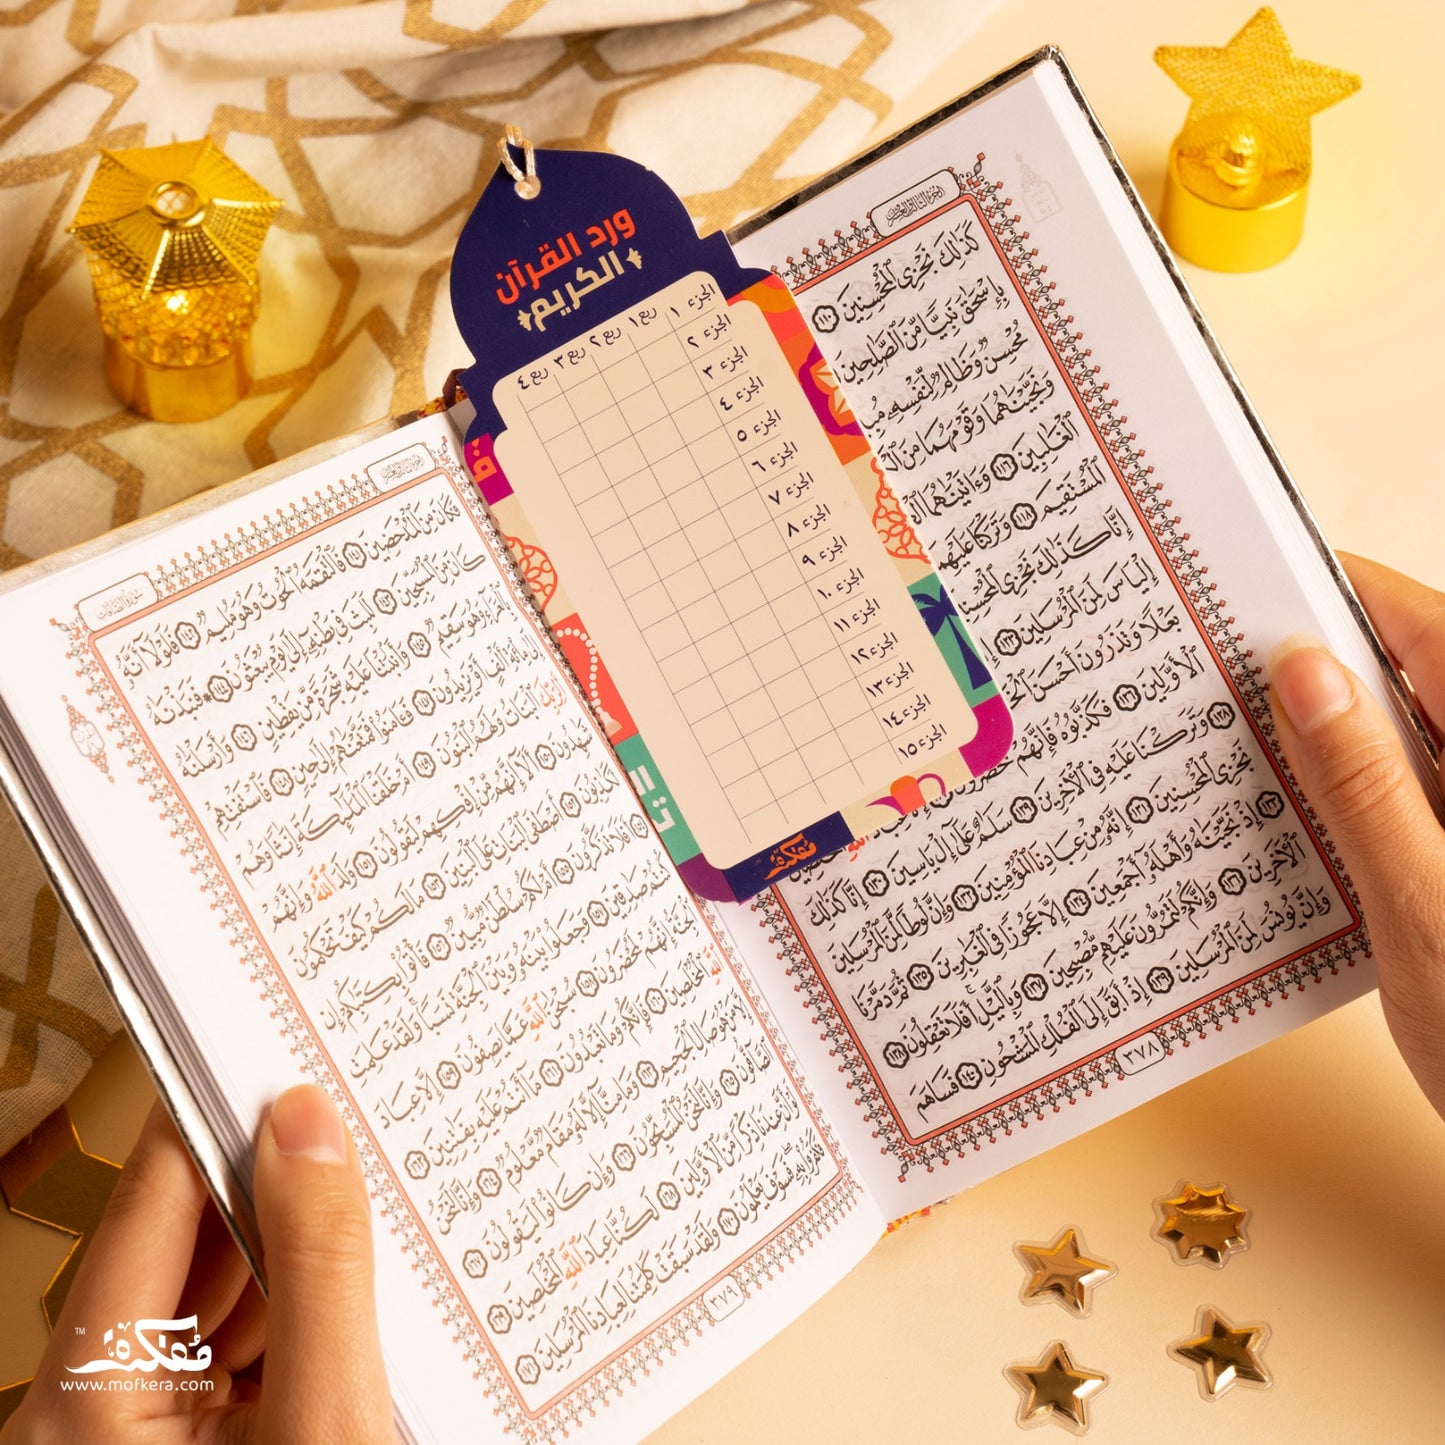 ورد القرآن
الكريم
ربع ١ ربع ٢ ربع ٣ ربع ٤
الجزء ١
الجزء ٢
الجزء ٣
الجزء ٤
الجزء ٥
الجزء ٦
الجزء ٧
الجزء ٨
الجزء ٩
الجزء ١٠
الجزء ١١
الجزء ١٢
الجزء ١٣
الجزء ١٤
الجزء ١٥
مفكرة
كَذَٰلِكَ نَجْزِى ٱلْمُحْسِنِينَ ١١٠
بِإِسْحَٰقَ نَبِيًّا مِّنَ ٱلصَّٰلِحِينَ
مُحْسِنٌ وَظَالِمٌ لِّنَفْسِهِۦ
وَنَجَّيْنَٰهُمَا وَقَوْمَهُمَا مِنَ
ٱلْغَٰلِبِينَ ١١٦ وَءَاتَيْنَٰهُمَا
ٱلْمُسْتَقِيمَ ١١٨ وَتَرَكْنَا عَلَيْهِمَا
إِنَّا كَذَٰلِكَ نَجْزِى
إِلْيَاسَ لَمِنَ ٱلْمُرْسَلِينَ ١٢٣
بَعْلًا وَتَذَرُونَ أَحْسَنَ
ٱلْأَوَّلِينَ ١٢٦ فَكَذَّبُوهُ فَإِنَّهُمْ لَمُحْضَرُونَ
١٢٨ وَتَرَكْنَا عَلَيْهِ فِى ٱلْءَاخِرِينَ ١٢٩ سَلَٰمٌ عَلَىٰٓ إِلْ يَاسِينَ ١٣٠ إِنَّا كَذَٰلِكَ
نَجْزِى ٱلْمُحْسِنِينَ ١٣١ إِنَّهُۥ مِنْ عِبَادِنَا ٱلْمُؤْمِنِينَ ١٣٢ وَإِنَّ لُوطًا لَّمِنَ ٱلْمُرْسَلِينَ
١٣٣ إِذْ نَجَّيْنَٰهُ وَأَهْلَهُۥٓ أَجْمَعِينَ ١٣٤ إِلَّا عَجُوزًا فِى ٱلْغَٰبِرِينَ ١٣٥ ثُمَّ دَمَّرْنَا
ٱلْءَاخَرِينَ ١٣٦ وَإِنَّكُمْ لَتَمُرُّونَ عَلَيْهِم مُّصْبِحِينَ ١٣٧ وَبِٱلَّيْلِ أَفَلَا تَعْقِلُونَ ١٣٨
وَإِنَّ يُونُسَ لَمِنَ ٱلْمُرْسَلِينَ ١٣٩ إِذْ أَبَقَ إِلَى ٱلْفُلْكِ ٱلْمَشْحُونِ ١٤٠ فَسَاهَمَ
٣٧٨
فَكَانَ مِنَ ٱلْمُدْحَضِينَ ١٤١ فَٱلْتَقَمَهُ ٱلْحُوتُ وَهُوَ مُلِيمٌ ١٤٢ فَلَوْلَآ أَنَّهُۥ
كَانَ مِنَ ٱلْمُسَبِّحِينَ ١٤٣ لَلَبِثَ فِى بَطْنِهِۦٓ إِلَىٰ يَوْمِ يُبْعَثُونَ ١٤٤ ۞ فَنَبَذْنَٰهُ
بِٱلْعَرَآءِ وَهُوَ سَقِيمٌ ١٤٥ وَأَنۢبَتْنَا عَلَيْهِ شَجَرَةً مِّن يَقْطِينٍ ١٤٦ وَأَرْسَلْنَٰهُ
إِلَىٰ مِا۟ئَةِ أَلْفٍ أَوْ يَزِيدُونَ ١٤٧ فَـَٔامَنُوا۟ فَمَتَّعْنَٰهُمْ إِلَىٰ حِينٍ ١٤٨ فَٱسْتَفْتِهِمْ
أَلِرَبِّكَ ٱلْبَنَاتُ وَلَهُمُ ٱلْبَنُونَ ١٤٩ أَمْ خَلَقْنَا ٱلْمَلَٰٓئِكَةَ إِنَٰثًا وَهُمْ
شَٰهِدُونَ ١٥٠ أَلَآ إِنَّهُم مِّنْ إِفْكِهِمْ لَيَقُولُونَ ١٥١ وَلَدَ ٱللَّهُ وَإِنَّهُمْ
لَكَٰذِبُونَ ١٥٢ أَصْطَفَى ٱلْبَنَاتِ عَلَى ٱلْبَنِينَ ١٥٣ مَا لَكُمْ كَيْفَ تَحْكُمُونَ
١٥٤ أَفَلَا تَذَكَّرُونَ ١٥٥ أَمْ لَكُمْ سُلْطَٰنٌ مُّبِينٌ ١٥٦ فَأْتُوا۟ بِكِتَٰبِكُمْ إِن
كُنتُمْ صَٰدِقِينَ ١٥٧ وَجَعَلُوا۟ بَيْنَهُۥ وَبَيْنَ ٱلْجِنَّةِ نَسَبًا وَلَقَدْ عَلِمَتِ
ٱلْجِنَّةُ إِنَّهُمْ لَمُحْضَرُونَ ١٥٨ سُبْحَٰنَ ٱللَّهِ عَمَّا يَصِفُونَ ١٥٩ إِلَّا عِبَادَ
ٱللَّهِ ٱلْمُخْلَصِينَ ١٦٠ فَإِنَّكُمْ وَمَا تَعْبُدُونَ ١٦١ مَآ أَنتُمْ عَلَيْهِ بِفَٰتِنِينَ ١٦٢
إِلَّا مَنْ هُوَ صَالِ ٱلْجَحِيمِ ١٦٣ وَمَا مِنَّآ إِلَّا لَهُۥ مَقَامٌ مَّعْلُومٌ ١٦٤ وَإِنَّا لَنَحْنُ
ٱلصَّآفُّونَ ١٦٥ وَإِنَّا لَنَحْنُ ٱلْمُسَبِّحُونَ ١٦٦ وَإِن كَانُوا۟ لَيَقُولُونَ ١٦٧
لَوْ أَنَّ عِندَنَا ذِكْرًا مِّنَ ٱلْأَوَّلِينَ ١٦٨ لَكُنَّا عِبَادَ ٱللَّهِ ٱلْمُخْلَصِينَ ١٦٩
فَكَفَرُوا۟ بِهِۦ فَسَوْفَ يَعْلَمُونَ ١٧٠ وَلَقَدْ سَبَقَتْ كَلِمَتُنَا لِعِبَادِنَا ٱلْمُرْسَلِينَ ١٧١
٣٧٩
مُفكرة ™
www.mofkera.com